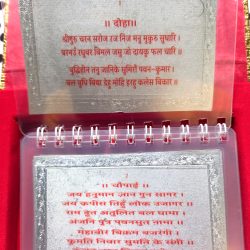 ॥ दोहा॥
श्रीगुरु चरन सरोज रज निज मनु मुकुरु सुधारि।
बरनउँ रघुबर बिमल जसु जो दायकु फल चारि॥
बुद्धिहीन तनु जानिके सुमिरौं पवन-कुमार।
बल बुधि बिद्या देहु मोहि हरहु कलेस बिकार॥
॥ चौपाई ॥
जय हनुमान ज्ञान गुन सागर।
जय कपीस तिहुँ लोक उजागर॥
राम दूत अतुलित बल धामा।
अंजनि पुत्र पवनसुत नामा॥
महाबीर बिक्रम बजरंगी।
कुमति निवार सुमति के संगी॥